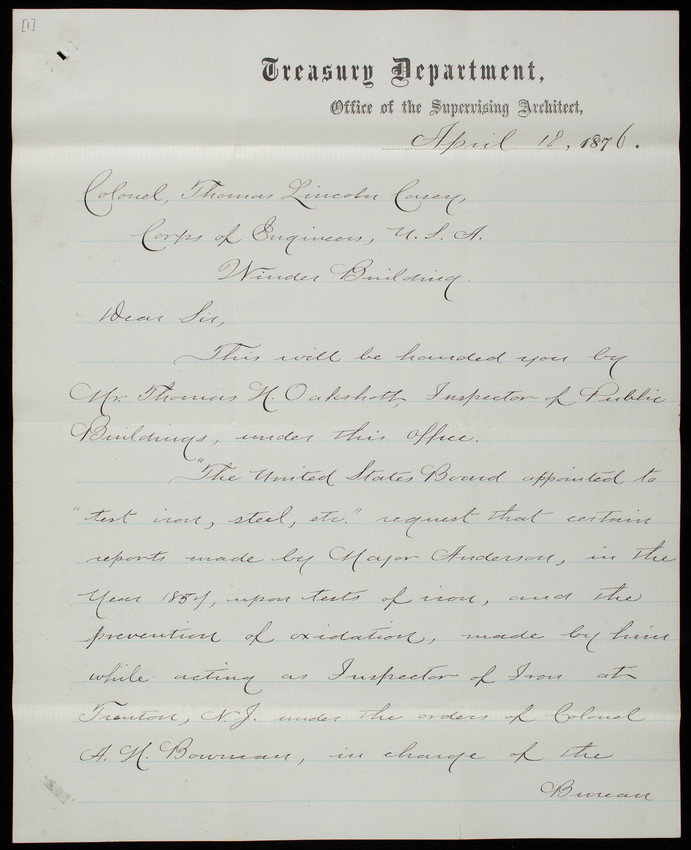 [1]
Treasury Department,
Office of the Supervising Architect,
April 18, 1876.
Colonel, Thomas Lincoln Casey,
Corps of Engineers, U. S. A.
Winder Building.
Dear Sir,
This will be handed you by
Mr. Thomas H. Oakshott, Inspector of Public
Buildings, under this office.
"The United States Board appointed to
"test iron, steel, etc." request that certain
reports made by Major Anderson, in the
Year, upon tests of iron, and the
prevention of oxidation, made by him
while acting as Inspector of Iron at
Trenton, N.J. under the orders of Colonel
A. H. Bowman, in charge of the
Bureau